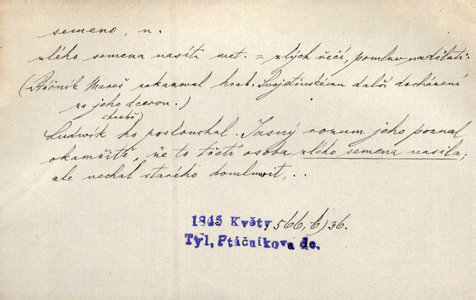 semeno, n.
zlého semena nasíti met. = zlých řečí, pomluv nadělati.
(Ptáčník Mareš zakazoval hrab. Svojdinskému další docházení
za jeho dcerou.)
(hrabě)
Ludwík ho poslouchal. Jasný rozum jeho poznal
okamžitě, že to třetí osoba zlého semena nasila,
ale nechal starého domluvit, ..
1845 Květy 566, b) 36.
Tyl, Ptáčníkova dc.